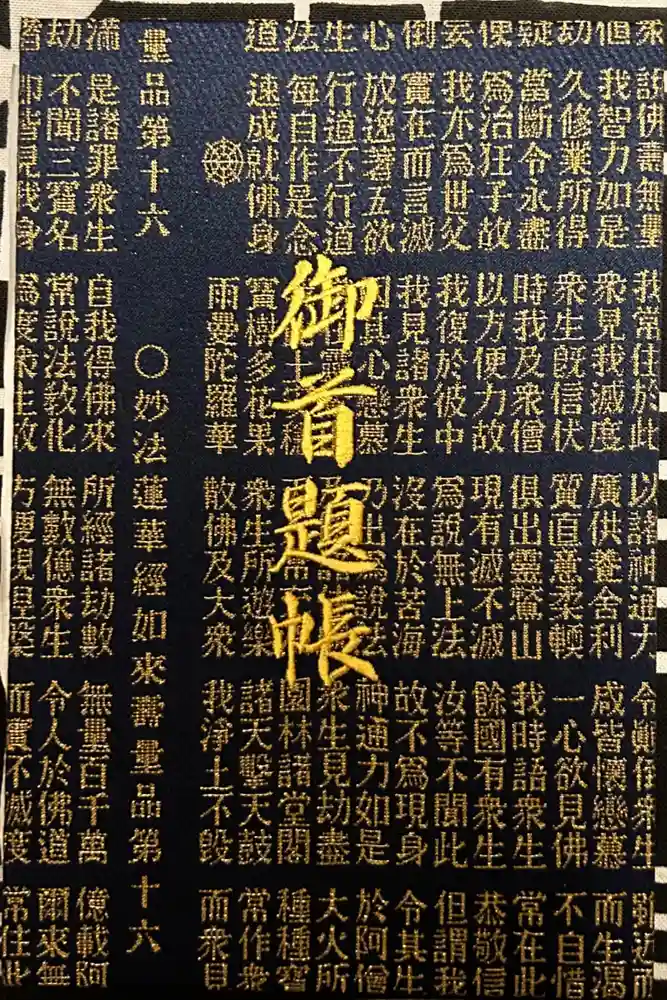 御首題帳
柔 説佛壽無量 我常住於此 以諸神通力 令顛倒衆生 雖近而
但 我智力如是 衆見我滅度 廣供養舍利 咸皆懷戀慕 而生渇
劫 久修業所得 衆生既信伏 質直意柔輭 一心欲見佛 不自惜
疑 當斷令永盡 時我及衆僧 俱出靈鷲山 我時語衆生 常在此
便 爲治狂子故 以方便力故 現有滅不滅 餘國有衆生 恭敬信
妄 我亦爲世父 我復於彼中 爲説無上法 汝等不聞此 但謂我
倒 實在而言滅 我見諸衆生 沒在於苦海 故不爲現身 令其生
心 放逸著五欲 因其心戀慕 乃出爲説法 神通力如是 於阿僧
生 行道不行道 衆生見劫盡 大火所
法 毎自作是念 園林諸堂閣 種種寶
道 速成就佛身 寶樹多花果 衆生所遊樂 諸天擊天鼓 常作衆
雨曼陀羅華 散佛及大衆 我淨土不毀 而衆見
量品第十六 ○妙法蓮華經如來壽量品第十六
滿 是諸罪衆生 自我得佛來 所經諸劫數 無量百千萬 億載阿
劫 不聞三寶名 常説法教化 無數億衆生 令人於佛道 爾來無
皆 即皆見我身 爲度衆生故 方便現涅槃 而實不滅度 常住此